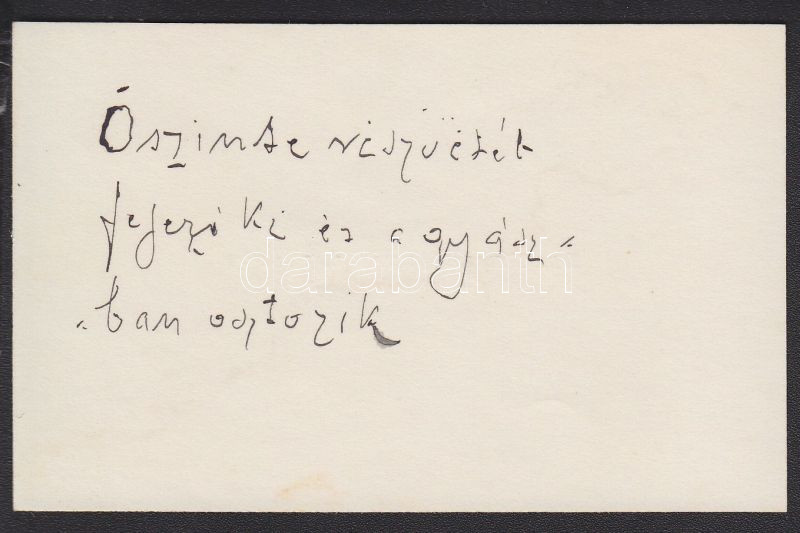 Őszinte részvétét
fejezi ki és a gyász-
-ban osztozik
darabanth